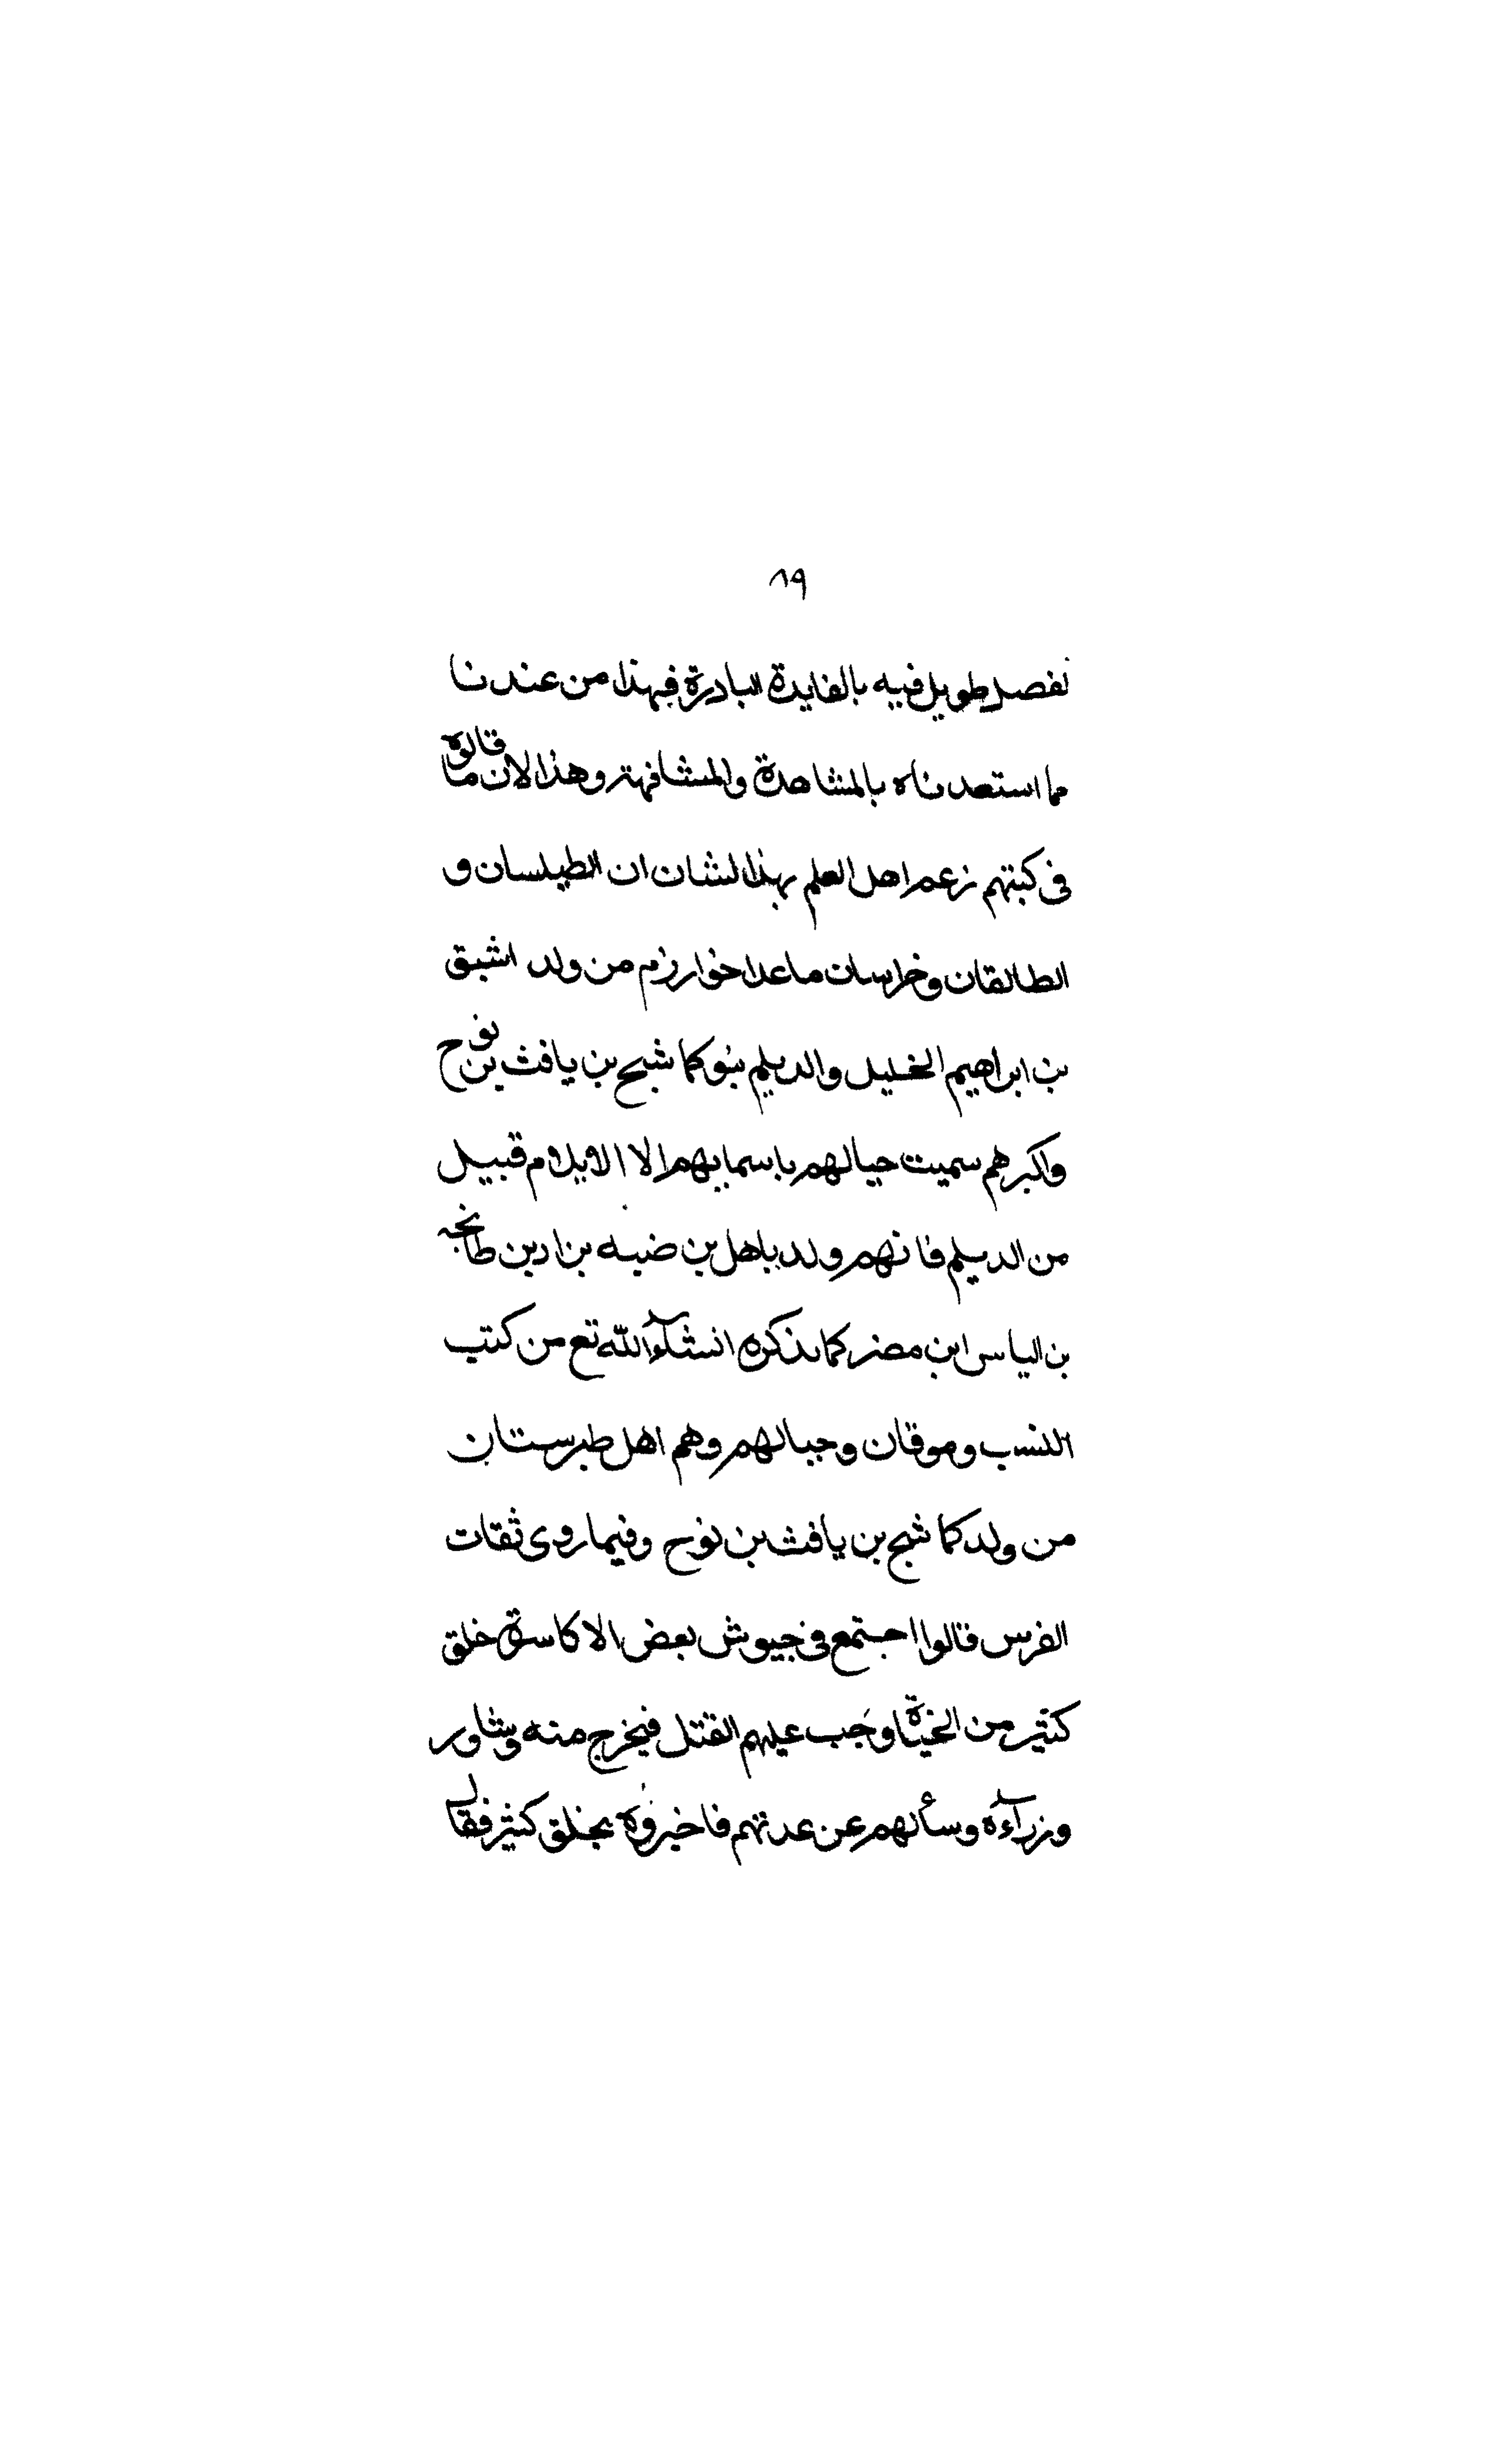 ٨٩
نفصل طويل فيه بالفايدة البادرة فهذا من عندنا
مما استعدناه بالمشاهدة والمشافهة وهذا لان ما قالوه
فى كتبهم زعم اهل العلم بهذا لشان ان الطيلسان و
الطالقان وخراسان ماعدا خوارزم من ولد اشبق
بن ابراهيم الخليل والديلم بنو كماشبح بن يافث بن نوح
واكبرهم سميت جبالهم باسمايهم الا الايلام قبيل
من الديلم فانهم ولد باهل بن ضبه بن اد بن طانجه
بن الياس ابن مضر كما نذكره انشآء الله تع من كتب
النسب وموقان وجبالهم وهم اهل طبرستان
من ولد كماشبح بن يافث بن نوح وفيما روى ثقات
الفرس قالوا اجتمع فى جيوش بعض الاكاسرة خلق
كثير من الخياة وجب عليهم القتل فيخرج منه وشاور
وزرآءه وسألهم عن عدتهم فاخبروه بخلق كثير فقال